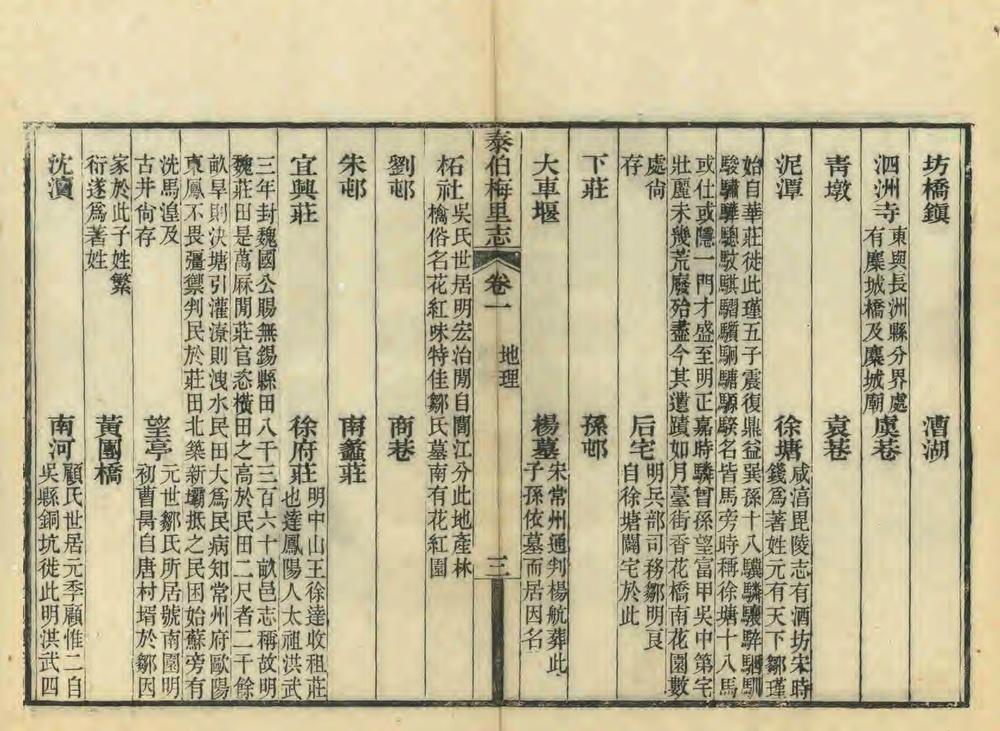 坊橋鎮 漕湖
泗洲寺 東與長洲縣分界處
有麋城橋及麋城廟 虞巷
青墩 袁巷
泥潭 徐塘 咸淳毘陵志有酒坊宋時
錢爲著姓元有天下鄒瑾
始自華莊徙此瑾五子震復鼎益巽孫十八驥驎驤騂駰馴
駿驌驊驄馼騏騮驥駉名皆馬旁時稱徐塘十八馬
或仕或隱一門才盛至明正嘉時驎曾孫望富甲吳中第宅
壯麗未幾荒廢殆盡今其遺蹟如月臺街香花橋南花園數
處尚
存 后宅 明兵部司務鄒明良
自徐塘闢宅於此
下莊 孫邨
大車堰 楊墓 宋常州通判楊航葬此
子孫依墓而居因名
泰伯梅里志 卷一 地理 三
柘社 吳氏世居明宏治閒自閶江分此地產林
檎俗名花紅味特佳鄒氏墓南有花紅園
劉邨 商巷
朱邨 南蠡莊
宜興莊 徐府莊 明中山王徐達收租莊
也達鳳陽人太祖洪武
三年封魏國公賜無錫縣田八千三百六十畝邑志稱故明
魏莊田是萬厤閒莊官恣橫田之高於民田二尺者二千餘
畝旱則決塘引灌潦則洩水民田大爲民病知常州府歐陽
東鳳不畏彊禦判民於莊田北築新壩抵之民困始蘇旁有
洗馬湟及
古井尚存 望亭 元世鄒氏所居號南園明
初曹禺自唐村壻於鄒因
家於此子姓繁
衍遂爲著姓 黃團橋
沈瀆 南河 顧氏世居元季顧惟二自
吳縣銅坑徙此明洪武四